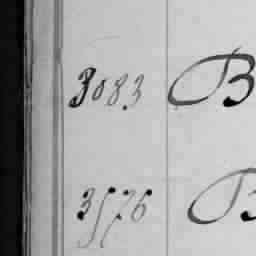 3083 B
3576 B